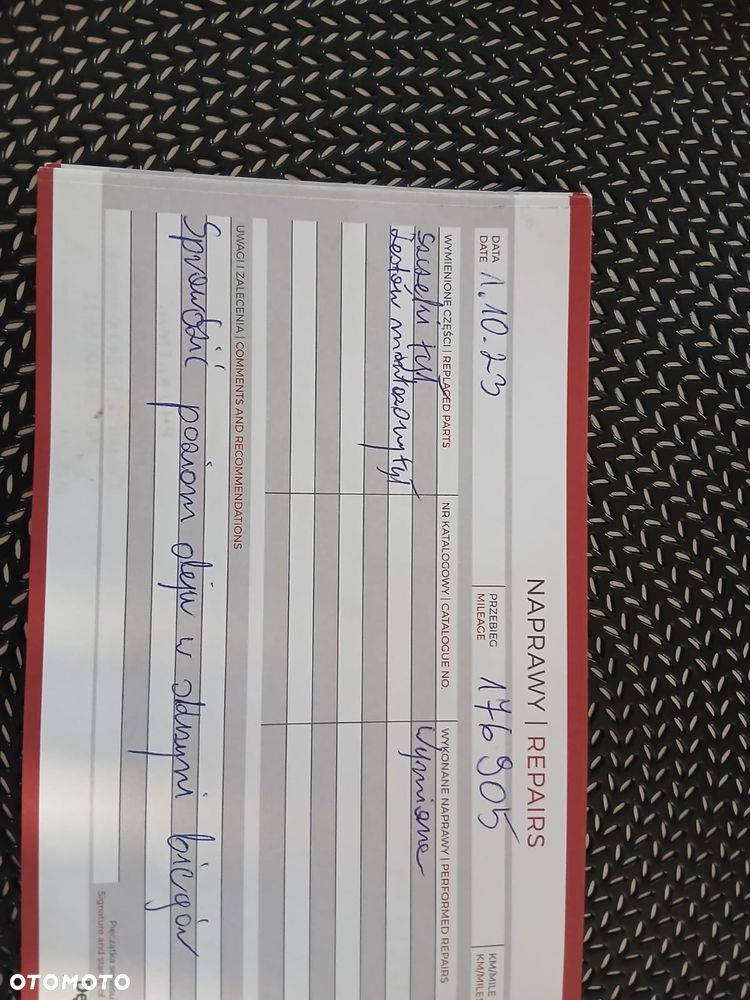 NAPRAWY | REPAIRS
DATA
DATE
1.10.23
PRZEBIEG
MILEAGE
176 905
KM/MILE
KM/MILES
WYMIENIONE CZĘŚCI | REPLACED PARTS
NR KATALOGOWY | CATALOGUE NO.
WYKONANE NAPRAWY | PERFORMED REPAIRS
tył
Wymiana
Zestaw montażowy tył
UWAGI I ZALECENIA | COMMENTS AND RECOMMENDATIONS
Sprawdzić poziom oleju w skrzyni biegów
Pieczątka
Signature and
OTOMOTO